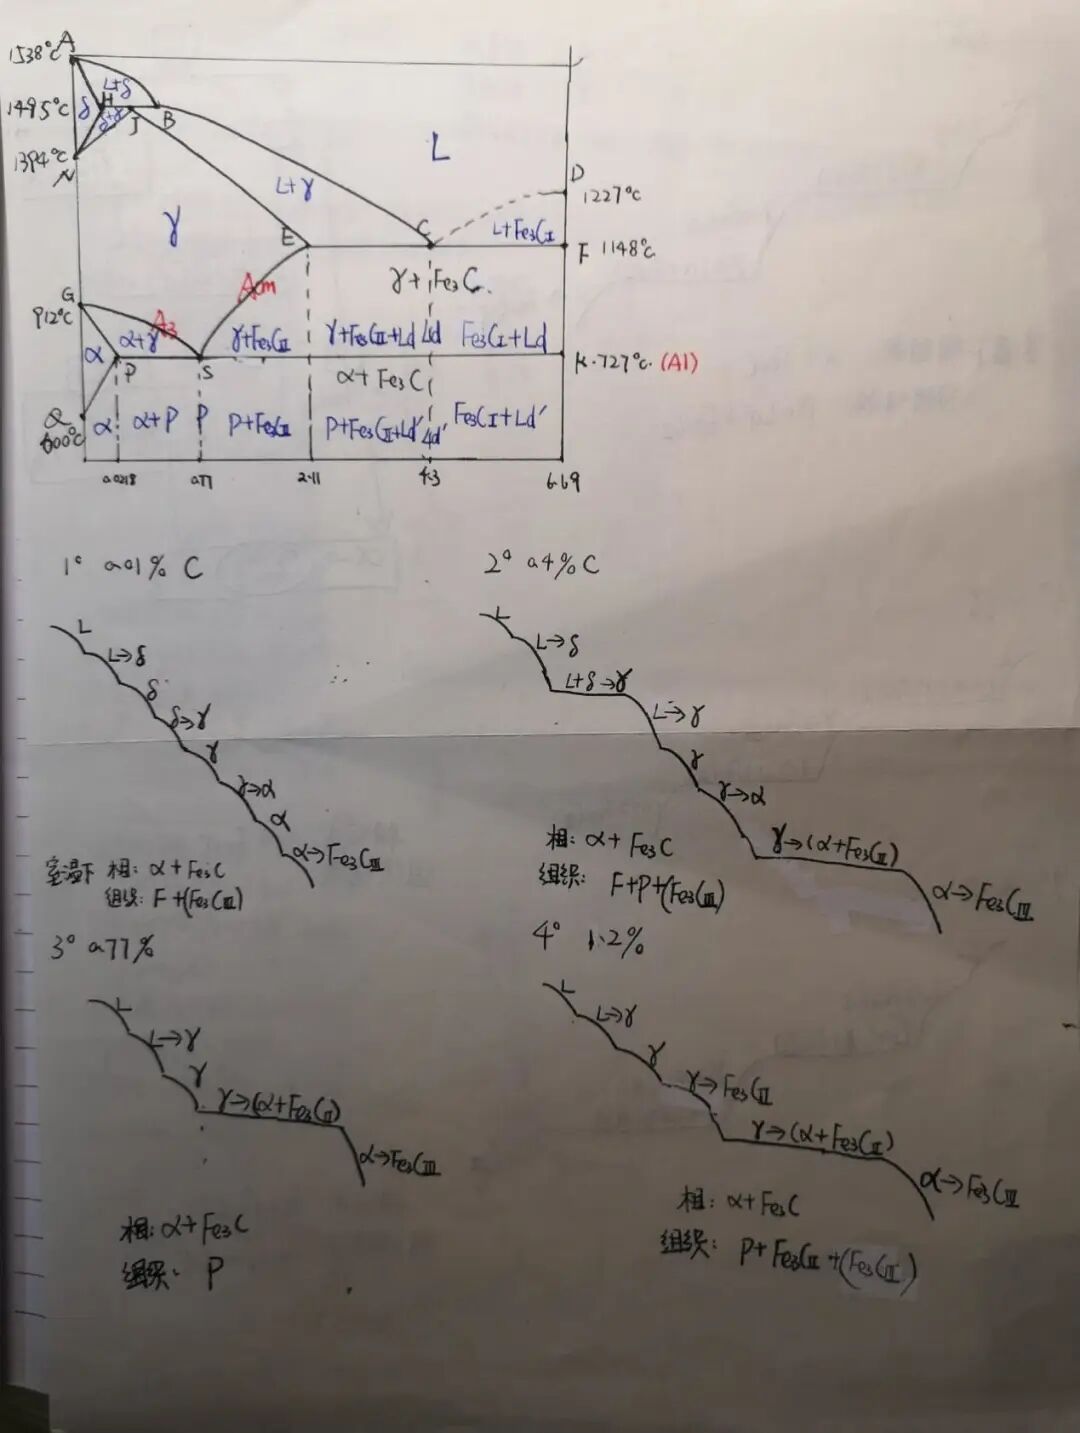 A
1538°C
L+δ
1495°C δ H
δ+γ J B
1394°C
N
L
D
1227°C
L+γ
γ
E C L+Fe₃CⅠ
F 1148°C
Acm γ+Fe₃C
G
912°C A3
α+γ γ+Fe₃CⅡ γ+Fe₃CⅡ+Ld Ld Fe₃CⅠ+Ld
α
P S K 727°C (A1)
α+Fe₃C
Q
600°C α α+P P P+Fe₃CⅡ P+Fe₃CⅡ+Ld′ Ld′ Fe₃CⅠ+Ld′
0.0218 0.77 2.11 4.3 6.69
1° 0.01% C
L
L→δ
δ
δ→γ
γ
γ→α
α
α→Fe₃CⅢ
室温下 相: α+Fe₃C
组织: F+(Fe₃CⅢ)
2° 0.4% C
L
L→δ
L+δ→γ
L→γ
γ
γ→α
γ→(α+Fe₃CⅡ)
α→Fe₃CⅢ
相: α+Fe₃C
组织: F+P+(Fe₃CⅢ)
3° 0.77%
L
L→γ
γ
γ→(α+Fe₃CⅡ)
α→Fe₃CⅢ
相: α+Fe₃C
组织: P
4° 1.2%
L
L→γ
γ
γ→Fe₃CⅡ
γ→(α+Fe₃CⅡ)
α→Fe₃CⅢ
相: α+Fe₃C
组织: P+Fe₃CⅡ+(Fe₃CⅢ)